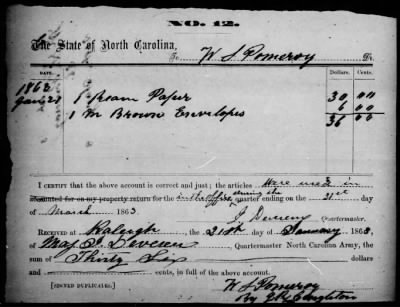 NO. 12.
The State of North Carolina,
To W S Pomeroy Dr.
DATE. Dollars. Cents.
1863
Jany 21 1 Ream Paper 30 00
1 M Brown Envelopes 6 00
36 00
I CERTIFY that the above account is correct and just; the articles were used in
accounted for on my property return for the in the office during the quarter ending on the 31st day
of March 1863. J Devereux Quartermaster.
RECEIVED at Raleigh the 21st day of January 1863,
of Maj J. Devereux Quartermaster North Carolina Army, the
sum of Thirty Six dollars
and cents, in full of the above account.
[SIGNED DUPLICATES.] W S Pomeroy
By